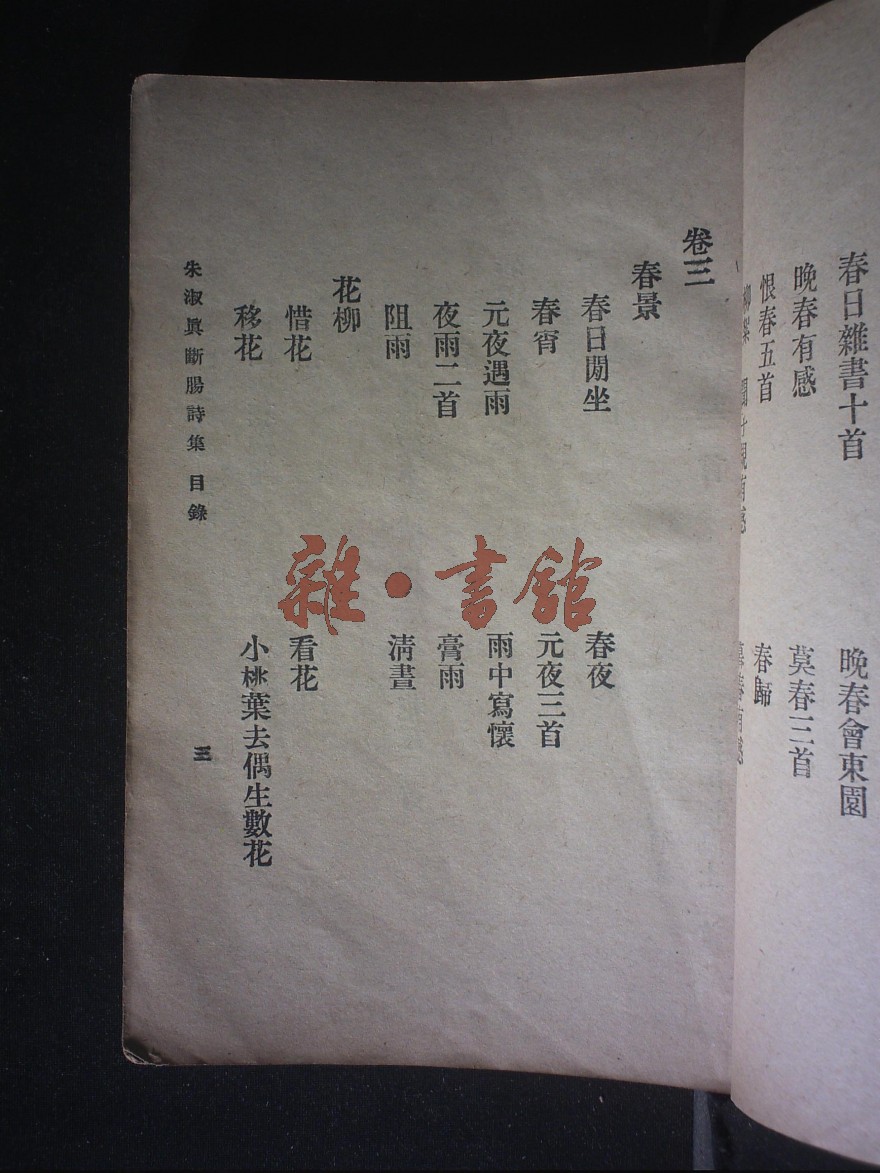 春日雜書十首　晚春會東園
晚春有感　莫春三首
恨春五首　春歸
柳絮
卷三
春景
春日閒坐　春夜
春宵　元夜三首
元夜遇雨　雨中寫懷
夜雨二首　膏雨
阻雨　清晝
花柳
惜花　看花
移花　小桃葉去偶生數花
朱淑眞斷腸詩集 目錄
三
雜·書館